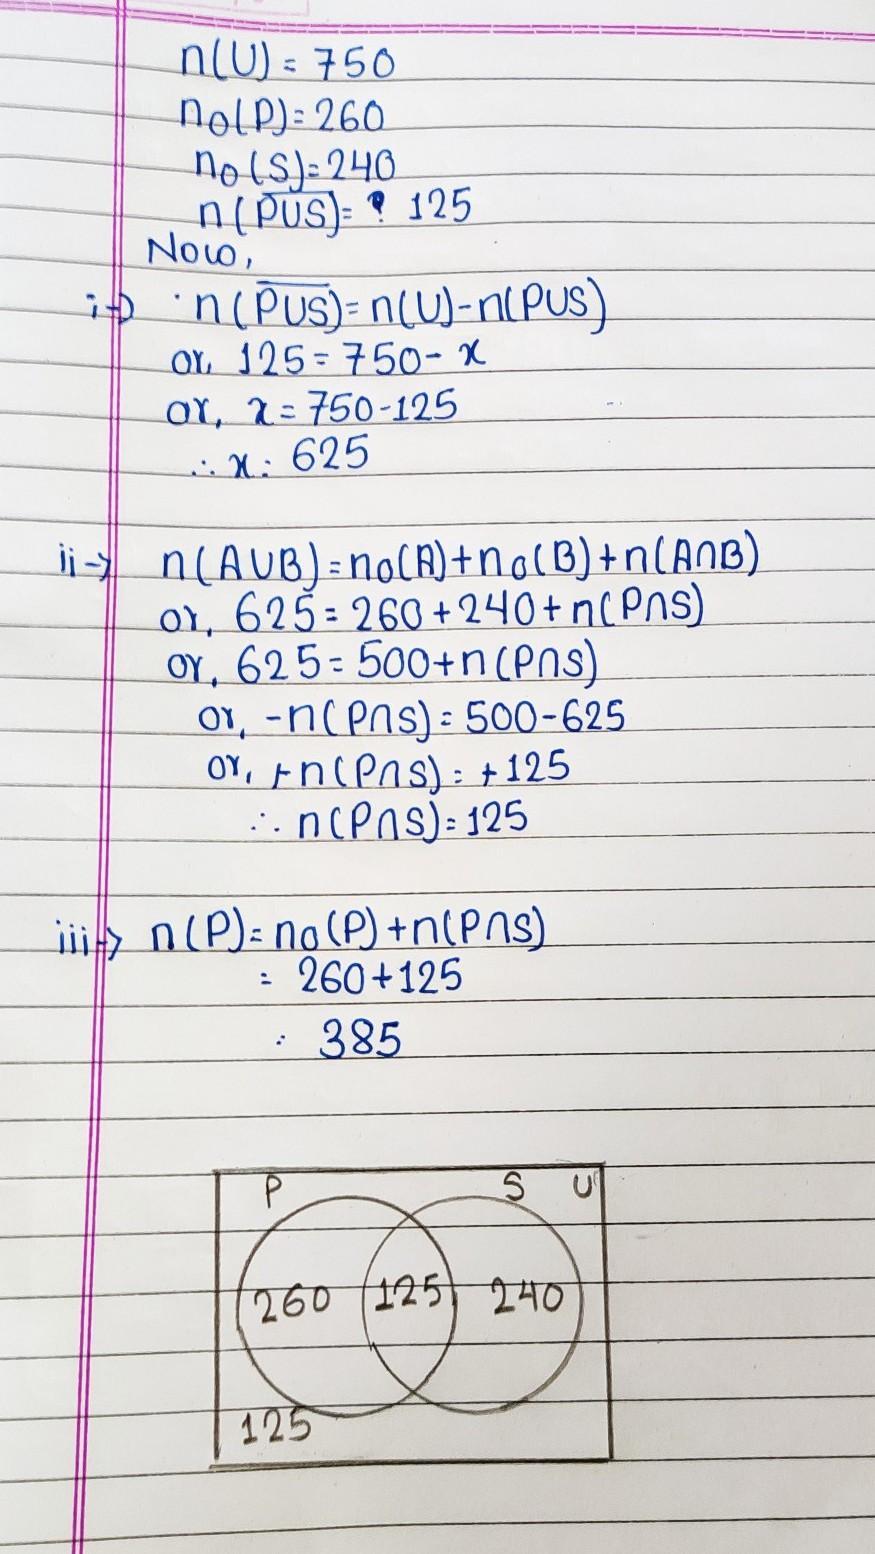 n(U) = 750
n₀(P) = 260
n₀(S) = 240
n(P̅U̅S̅) = ? 125
Now,
i→ n(P̅U̅S̅) = n(U) - n(PUS)
or, 125 = 750 - x
or, x = 750 - 125
∴ x = 625
ii→ n(AUB) = n₀(A) + n₀(B) + n(A∩B)
or, 625 = 260 + 240 + n(P∩S)
or, 625 = 500 + n(P∩S)
or, -n(P∩S) = 500 - 625
or, +n(P∩S) = +125
∴ n(P∩S) = 125
iii→ n(P) = n₀(P) + n(P∩S)
= 260 + 125
= 385
P S U
260 125 240
125